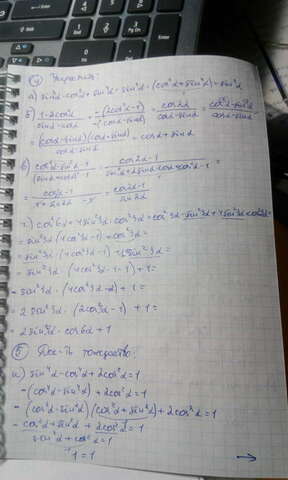 ④ Упростить:
а) sin²α·cos²α + sin⁴α = sin²α·(cos²α + sin²α) = sin²α
б) (1-2cos²α)/(sinα-cosα) = -(2cos²α-1)/(sinα-cosα) = cos2α/(cosα-sinα) = (cos²α-sin²α)/(cosα-sinα) =
= (cosα+sinα)(cosα-sinα)/(cosα-sinα) = cosα+sinα
в) (cos²α-sin²α-1)/((sinα+cosα)²-1) = (cos2α-1)/(sin²α+2sinα·cosα+cos²α-1) =
= (cos2α-1)/(1+sin2α-1) = (cos2α-1)/sin2α
= sin²3α·(4cos²3α-1)+cos²3α=
= sin²3α·(4cos²3α-1)+1-sin²3α=
= sin²3α·(4cos²3α-1-1)+1=
= sin²3α·(4cos²3α-2)+1=
= 2sin²3α·(2cos²3α-1)+1=
= 2sin²3α·cos6α+1
⑤ Док-ть тождество:
sin⁴α-cos⁴α+2cos²α=1
-(cos⁴α-sin⁴α)+2cos²α=1
-(cos²α-sin²α)(cos²α+sin²α)+2cos²α=1
-cos²α+sin²α+2cos²α=1
sin²α+cos²α=1
1=1
→